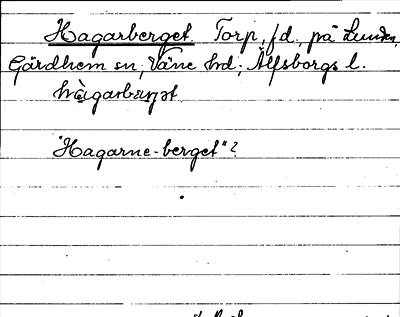 Hagarberget. Torp, fd., på Lunden,
Gärdhem sn, Väne hd, Älfsborgs l.
hàgarbærjət
"Hagarne-berget"?